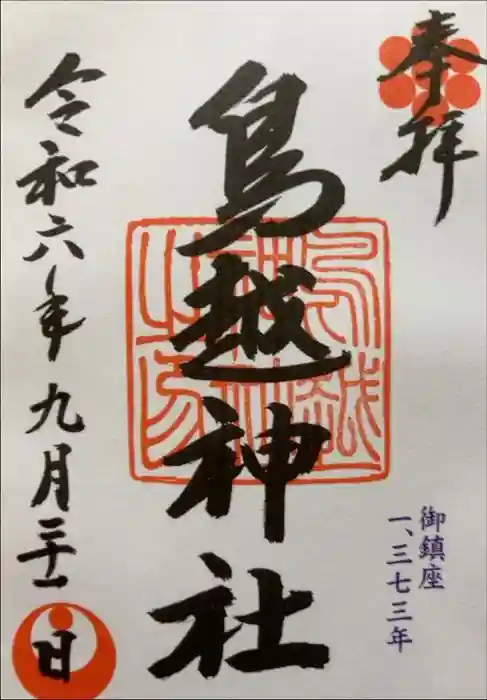 奉拝
御鎮座
一、三七三年
鳥越神社
令和六年九月二十一日